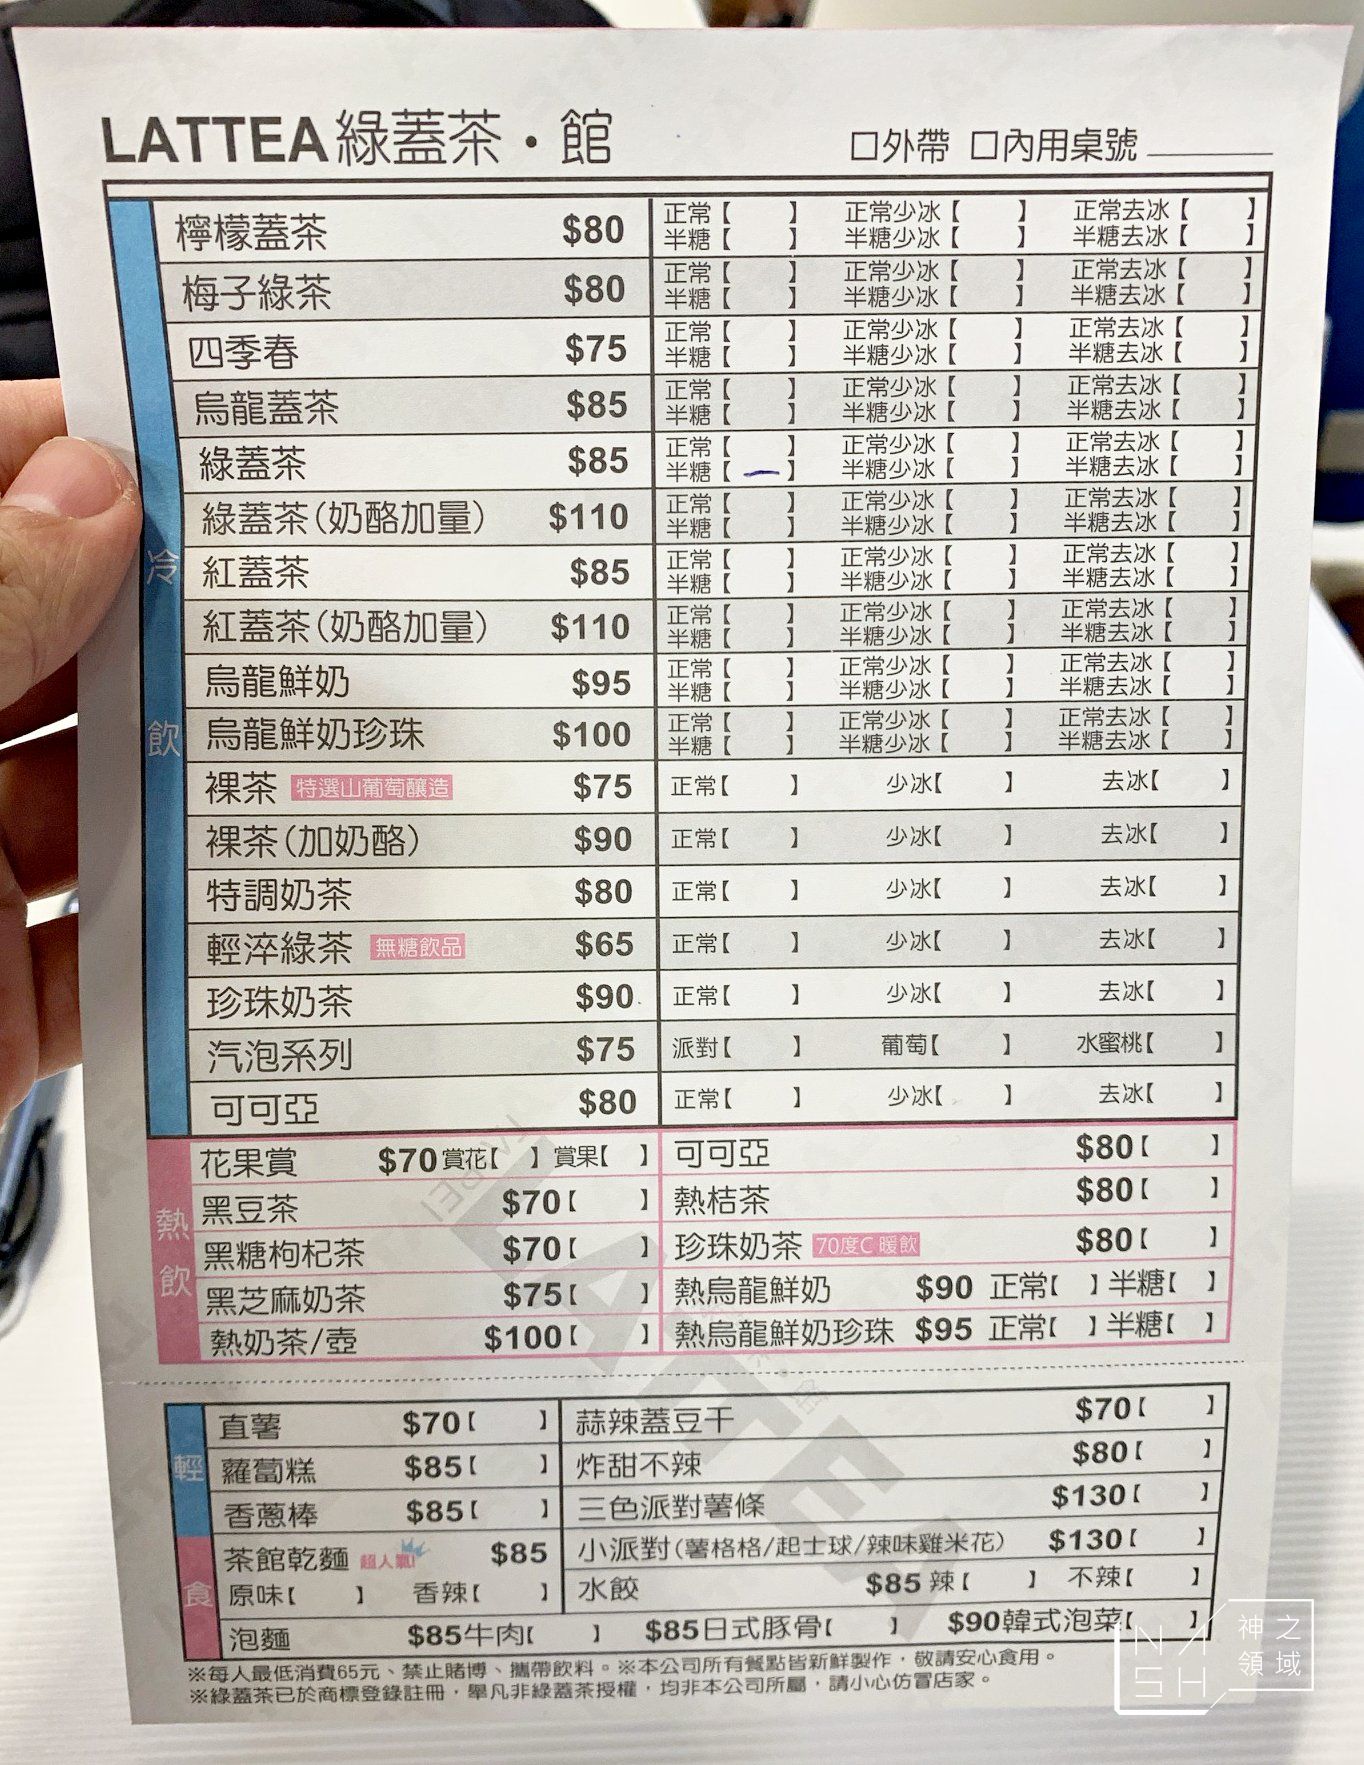 LATTEA綠蓋茶・館 口外帶 口內用桌號
檸檬蓋茶 $80 正常【 】 正常少冰【 】 正常去冰【 】
半糖【 】 半糖少冰【 】 半糖去冰【 】
梅子綠茶 $80 正常【 】 正常少冰【 】 正常去冰【 】
半糖【 】 半糖少冰【 】 半糖去冰【 】
四季春 $75 正常【 】 正常少冰【 】 正常去冰【 】
半糖【 】 半糖少冰【 】 半糖去冰【 】
烏龍蓋茶 $85 正常【 】 正常少冰【 】 正常去冰【 】
半糖【 】 半糖少冰【 】 半糖去冰【 】
綠蓋茶 $85 正常【 】 正常少冰【 】 正常去冰【 】
半糖【 】 半糖少冰【 】 半糖去冰【 】
綠蓋茶(奶酪加量) $110 正常【 】 正常少冰【 】 正常去冰【 】
半糖【 】 半糖少冰【 】 半糖去冰【 】
冷飲
紅蓋茶 $85 正常【 】 正常少冰【 】 正常去冰【 】
半糖【 】 半糖少冰【 】 半糖去冰【 】
紅蓋茶(奶酪加量) $110 正常【 】 正常少冰【 】 正常去冰【 】
半糖【 】 半糖少冰【 】 半糖去冰【 】
烏龍鮮奶 $95 正常【 】 正常少冰【 】 正常去冰【 】
半糖【 】 半糖少冰【 】 半糖去冰【 】
烏龍鮮奶珍珠 $100 正常【 】 正常少冰【 】 正常去冰【 】
半糖【 】 半糖少冰【 】 半糖去冰【 】
裸茶 特選山葡萄釀造 $75 正常【 】 少冰【 】 去冰【 】
裸茶(加奶酪) $90 正常【 】 少冰【 】 去冰【 】
特調奶茶 $80 正常【 】 少冰【 】 去冰【 】
輕淬綠茶 無糖飲品 $65 正常【 】 少冰【 】 去冰【 】
珍珠奶茶 $90 正常【 】 少冰【 】 去冰【 】
汽泡系列 $75 派對【 】 葡萄【 】 水蜜桃【 】
可可亞 $80 正常【 】 少冰【 】 去冰【 】
熱飲
花果賞 $70 賞花【 】 賞果【 】 可可亞 $80【 】
黑豆茶 $70【 】 熱桔茶 $80【 】
黑糖枸杞茶 $70【 】 珍珠奶茶 70度C 暖飲 $80【 】
黑芝麻奶茶 $75【 】 熱烏龍鮮奶 $90 正常【 】 半糖【 】
熱奶茶/壺 $100【 】 熱烏龍鮮奶珍珠 $95 正常【 】 半糖【 】
輕食
直薯 $70【 】 蒜辣蓋豆干 $70【 】
蘿蔔糕 $85【 】 炸甜不辣 $80【 】
香蔥棒 $85【 】 三色派對薯條 $130【 】
茶館乾麵 超人氣! $85 小派對(薯格格/起士球/辣味雞米花) $130【 】
原味【 】 香辣【 】 水餃 $85 辣【 】 不辣【 】
泡麵 $85牛肉【 】 $85日式豚骨【 】 $90韓式泡菜【 】
※每人最低消費65元、禁止賭博、攜帶飲料。※本公司所有餐點皆新鮮製作，敬請安心食用。
※綠蓋茶已於商標登錄註冊，舉凡非綠蓋茶授權，均非本公司所屬，請小心仿冒店家。
LATTEA
TAIPEI
NASH 神之領域